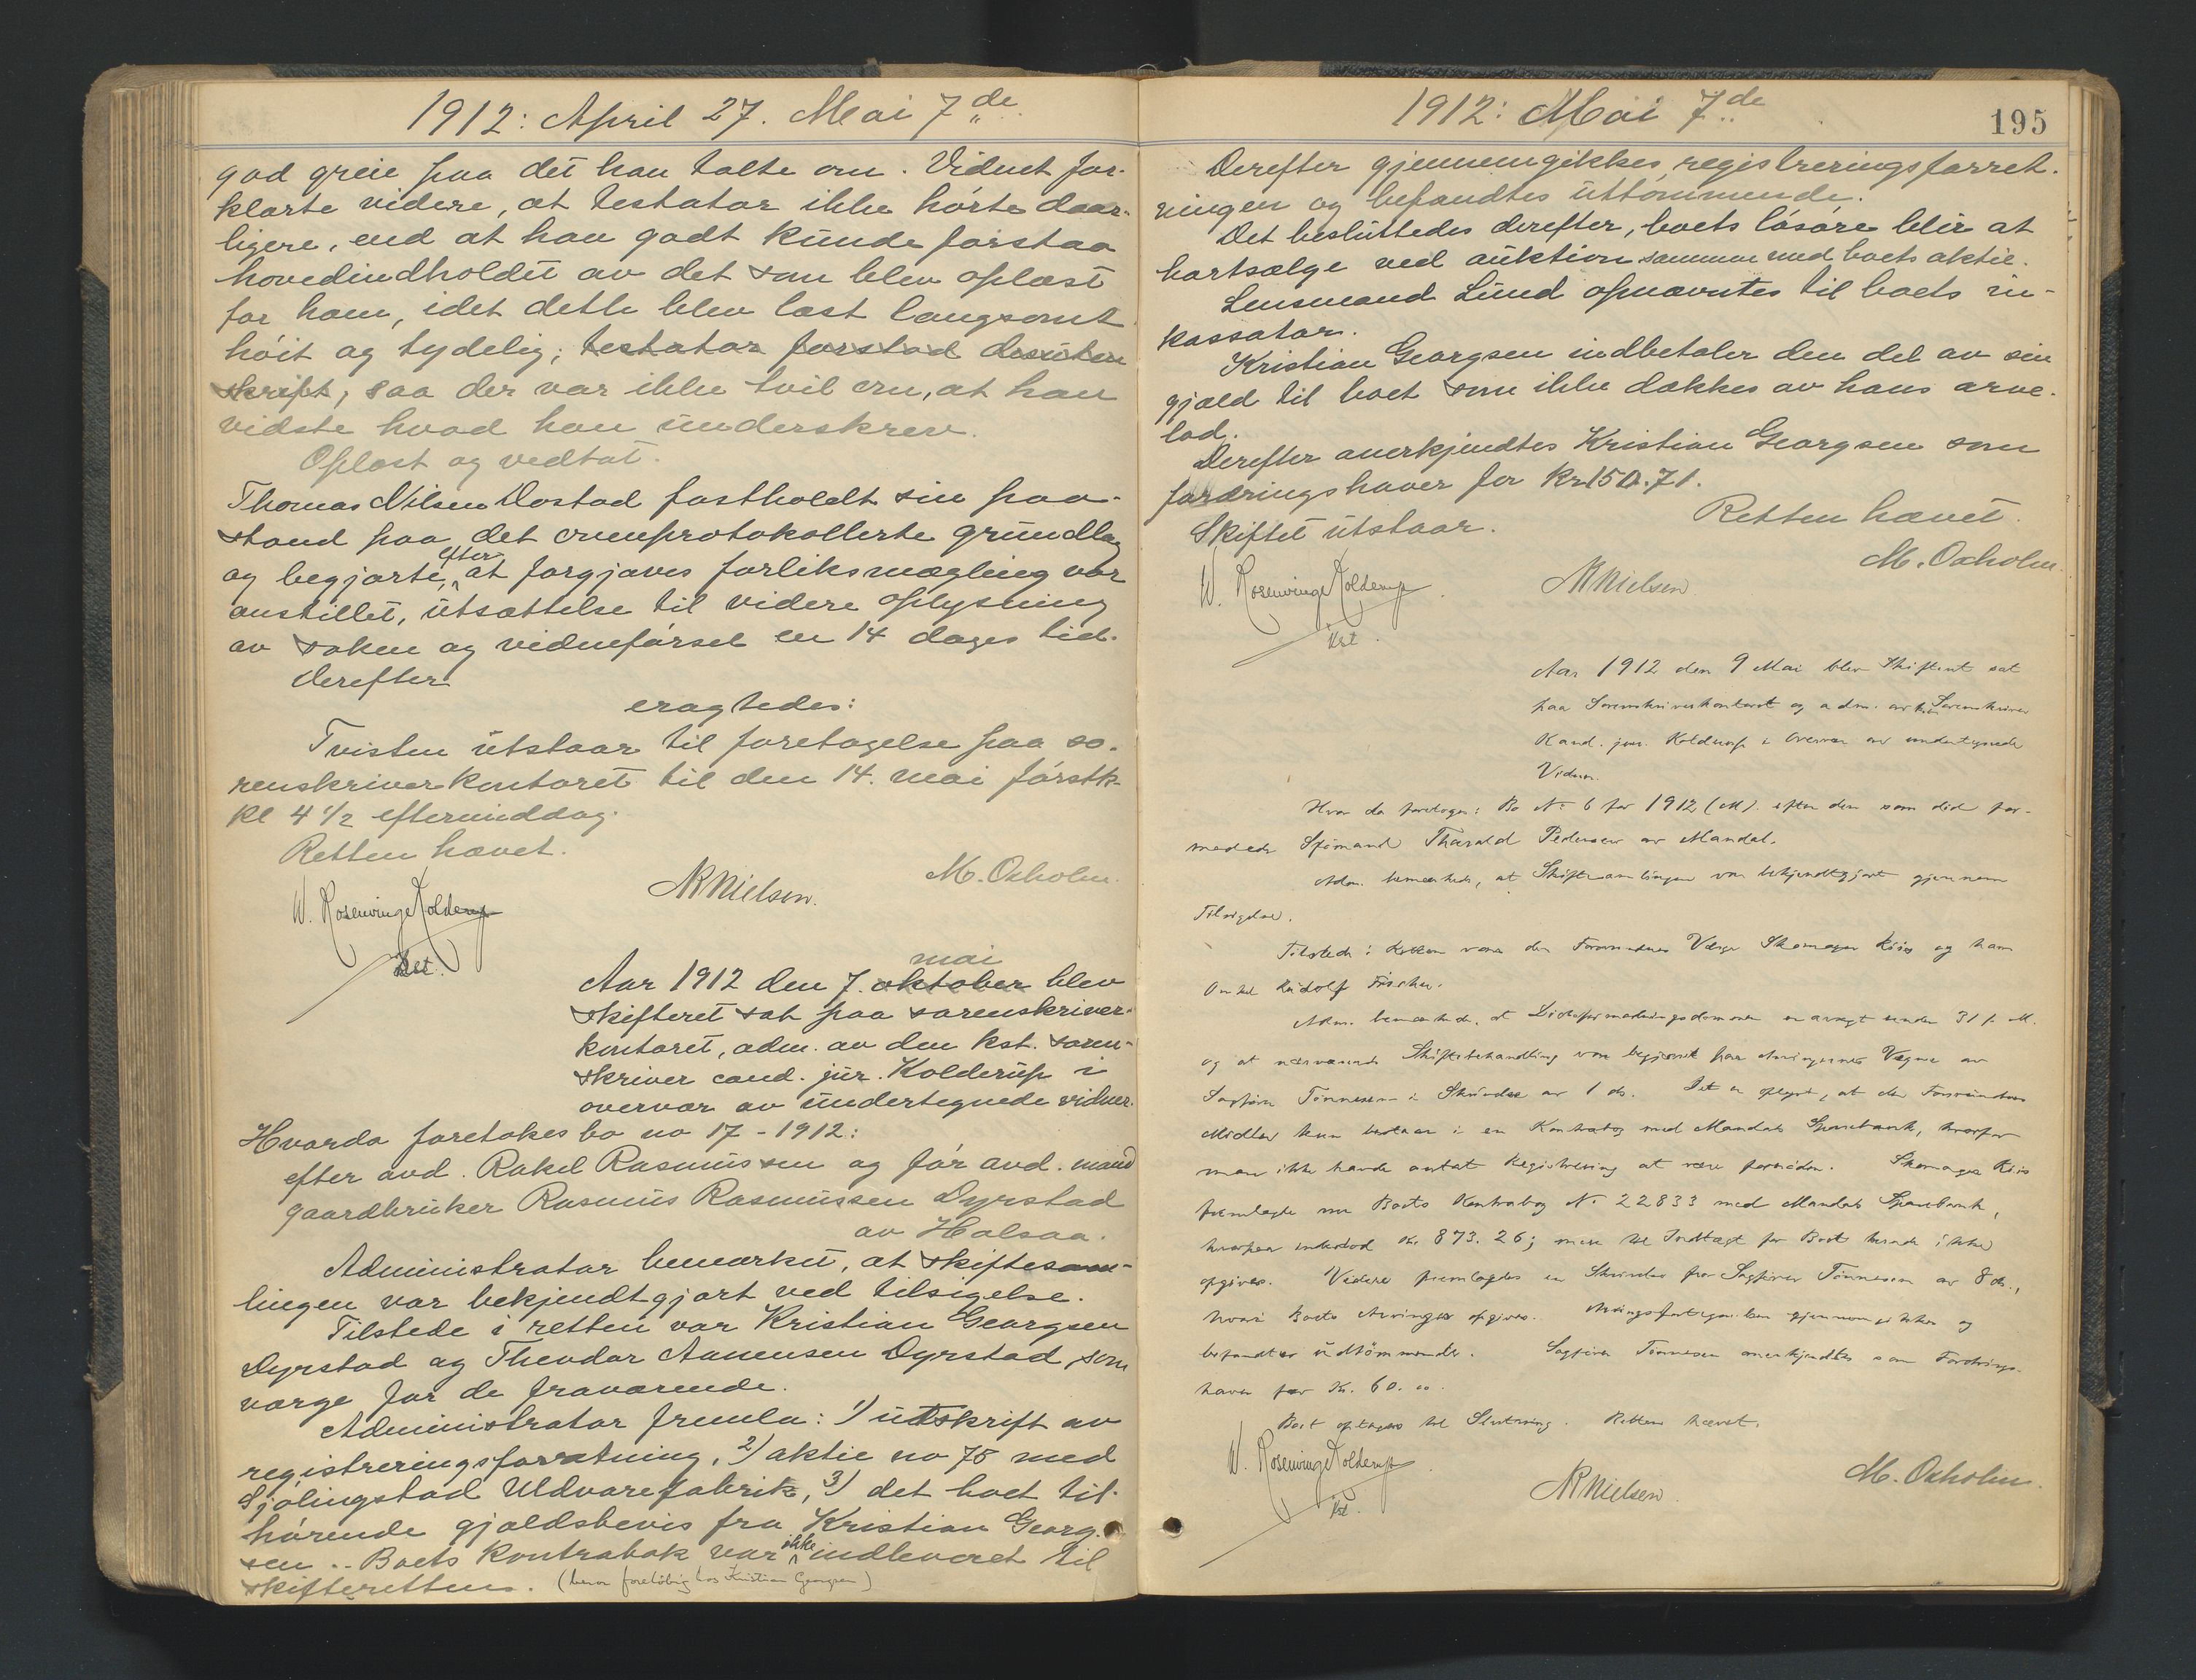 1912: April 27. Mai 7de
god greie paa det han talte om. Vidnet for-
klarte videre, at testator ikke hørte daar-
ligere, end at han godt kunde forstaa
hovedindholdet av det som blev oplæst
for ham, idet dette blev læst langsomt
høit og tydelig; testator forstod desuten
skrift, saa der var ikke tvil om, at han
vidste hvad han underskrev.
Oplæst og vedtat.
Thomas Nilsen Dostad fastholdt sin paa-
stand paa det omprotokollerte grundlag
og begjærte, efter at forgjæves forliksmægling var
anstillet, utsættelse til videre oplysning
av saken og vidneførsel en 14 dages tid.
Derefter
eragtedes:
Tvisten utstaar til foretagelse paa so-
renskriverkontoret til den 14. mai førstk.
kl 4 1/2 eftermiddag.
Retten hævet.
M. Oxholm.
NNielsen.
W. Rosenvinge Kolderup
kst.
mai
Aar 1912 den 7. oktober blev
skifteret sat paa sorenskriver-
kontoret, adm. av den kst. soren-
skriver cand. jur. Kolderup i
overvær av undertegnede vidner.
Hvorda foretokes bo no 17 - 1912:
efter avd. Rakel Rasmussen og før avd. mand
gaardbruker Rasmus Rasmussen Dyrstad
av Halsaa.
Administrator bemærket, at skiftesam-
lingen var bekjendtgjort ved tilsigelse.
Tilstede i retten var Kristian Georgsen
Dyrstad og Theodor Aanensen Dyrstad, som
værge for de fraværende.
Administrator fremla: 1) utskrift av
registreringsforretning, 2) aktie no 75 med
Sjølingstad Uldvarefabrik, 3) det boet til-
hørende gjældsbevis fra Kristian Georg-
sen .. Boets kontrabok var ikke indleveret til
skifteretten. (beror foreløbig hos Kristian Georgsen)
1912: Mai 7de
195
Derefter gjennemgikkes registreringsforret-
ningen og befandtes uttømmende.
Det besluttedes derefter, boets løsøre blir at
bortsælge ved auktion sammen med boets aktie.
Lensmand Lund opnævntes til boets in-
kassator.
Kristian Georgsen indbetaler den del av sin
gjæld til boet som ikke dækkes av hans arve-
lod.
Derefter anerkjendtes Kristian Georgsen som
fordringshaver for Kr 150.71.
Skiftet utstaar.
Retten hævet.
M. Oxholm.
NNielsen
W. Rosenvinge Kolderup
kst.
Aar 1912 den 9 Mai blev Skifteret sat
paa Sorenskriverkontoret og adm. av kst. Sorenskriver
Kand. jur. Kolderup i Overvær av undertegnede
Vidner.
Hvor da foretoges: Bo No 6 for 1912 (M). efter den som død for-
modede Sjømand Tharald Pedersen av Mandal.
Adm. bemærkede, at Skiftesamlingen var bekjendtgjort gjennem
Tilsigelse.
Tilstede i Retten var den Forsvundnes Værge Skomager Riis og hans
Onkel Rudolf Fischer.
Adm. bemærkede, at Dødsformodningsdommen er avsagt under 31 f. M.
og at nærværende Skiftebehandling var begjæret paa Arvingernes Vegne av
Sagfører Tønnesen i Skrivelse av 1 ds. Det er oplyst, at den Forsvundnes
Midler kun bestaar i en Kontrabog med Mandals Sparebank, hvorfor
man ikke havde antat Registrering at være fornøden. Skomager Riis
fremlagde nu Boets Kontrabog No 22833 med Mandals Sparebank,
hvorpaa indestod Kr. 873.26; mere til Indtægt for Boet kunde ikke
opgives. Videre fremlagdes en Skrivelse fra Sagfører Tønnesen av 8 ds.,
hvori Boets Arvinger opgives. Arvingsfortegnelsen gjennemgikkes og
befandtes udtømmende. Sagfører Tønnesen anerkjendtes som Fordrings-
haver for Kr. 60.00.
Boet optages til Slutning. Retten hævet.
M. Oxholm.
NNielsen.
W. Rosenvinge Kolderup
kst.